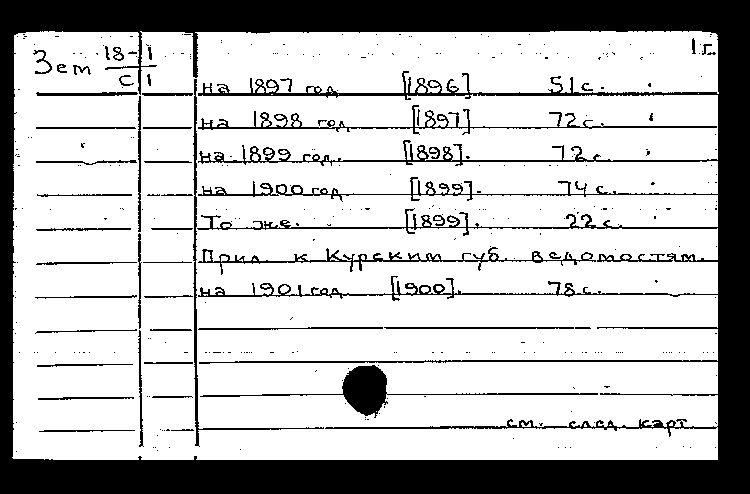 1г.
Зет 18-1
С 1
на 1897 год [1896]. 51 с.
на 1898 год [1897] 72 с.
на 1899 год. [1898]. 72 с.
на 1900 год [1899]. 74 с.
То же. [1899]. 22 с.
Прил. к Курским губ. ведомостям.
на 1901 год [1900]. 78 с.
см. след. карт.